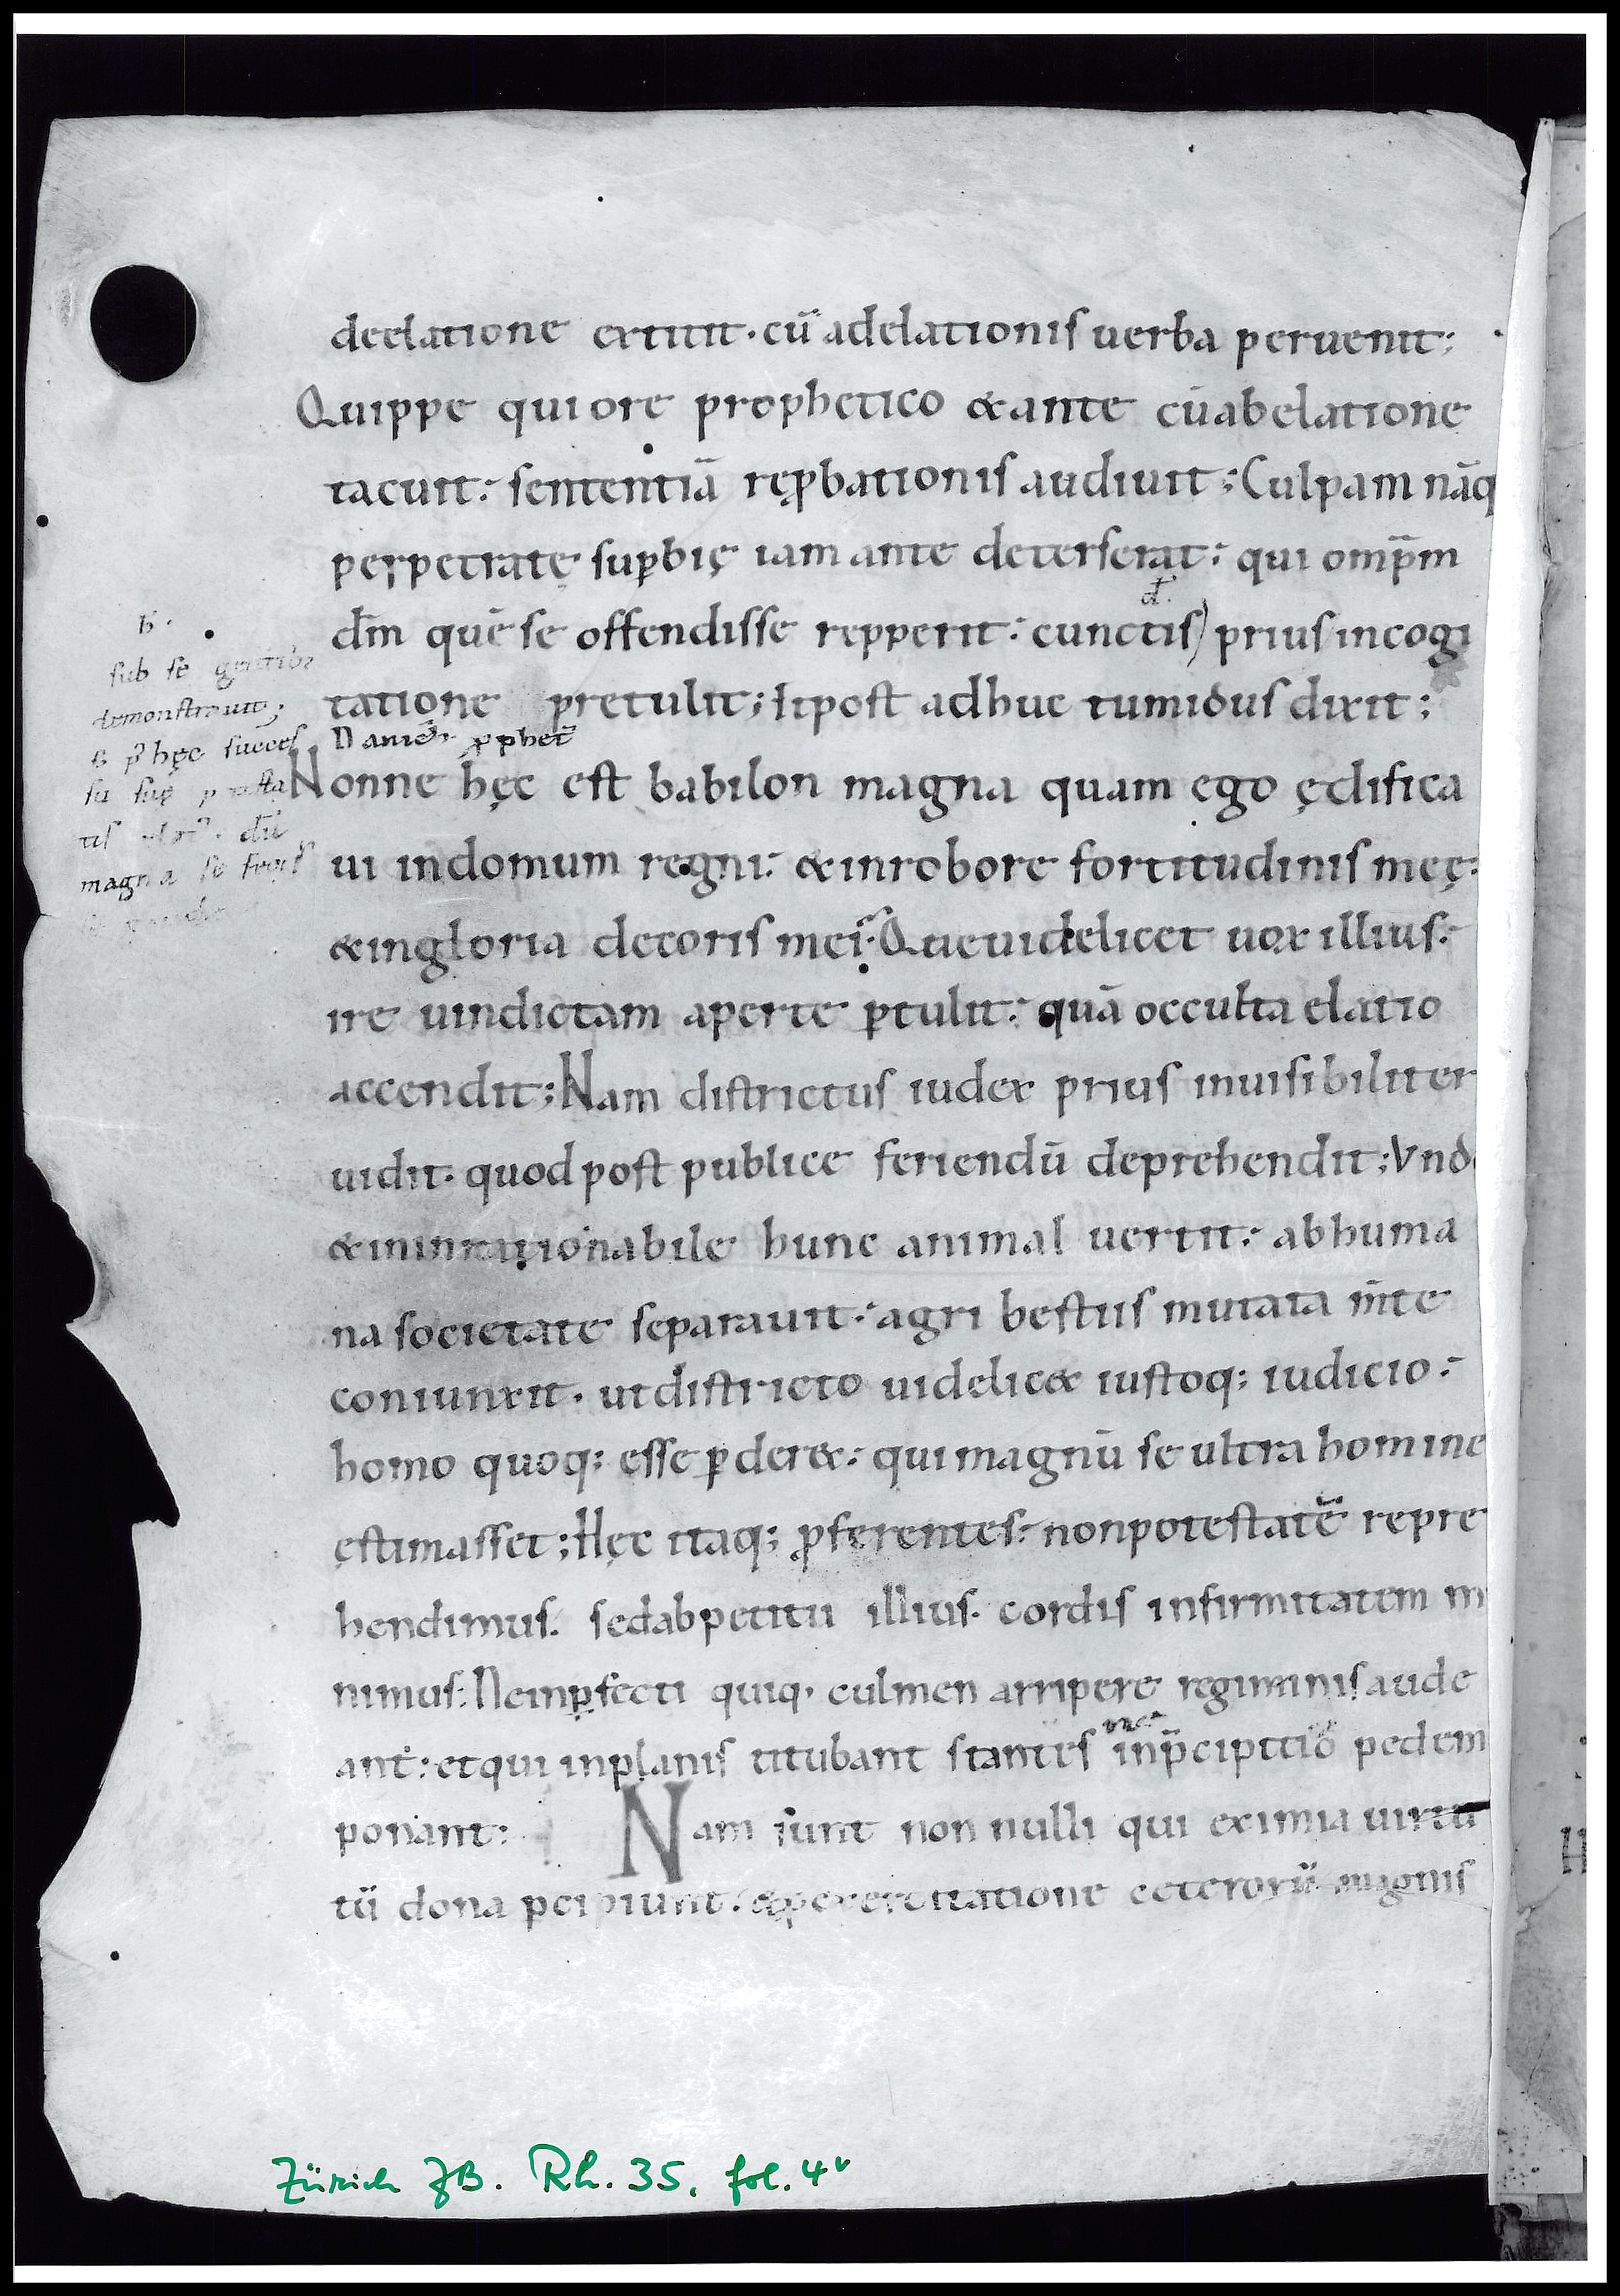 deelatione extitit · cū adelationis uerba peruenit;
Quippe qui ore prophetico & ante cū abelatione
tacuit: sententiā rep̱bationis audiuit; Culpam nāq
perpetratę sup̱bię iam ante deterserat: qui omp̄m
đ.
dm̄ quē se offendisse repperit: cunctis) prius incogi
tatione pretulit; Hi post adhuc tumidus dixit;
Daniel prophet̄
Nonne hęc est babilon magna quam ego ędifica
ui indomum regni: & inrobore fortitudinis meę:
& ingloria decoris mei: Que uidelicet uox illius:
ire uindictam aperte p̱tulit: quā occulta elatio
accendit; Nam districtus iudex prius inuisibiliter
uidit · quod post publice feriendū deprehendit; Vnd
& ininrationabile hunc animal uertit: abhuma
na societate separauit: agri bestiis mutata m̄te
coniunxit · ut districto uidelic& iustoq; iudicio:
homo quoq; esse p̱der&: qui magnū se ultra homine
ęstimasset; Hęc itaq; ꝓferentes: non potestatē repre
hendimus. sed ab petitu illius. cordis infirmitatem m
nimus: Ne imp̱fecti quiq· culmen arripere regiminis aude
ant: et qui inplanis titubant stantes inp̄cipitio pedem
ponant: Nam sunt non nulli qui eximia uirtu
tū dona p̱cipiunt: & p̱ exercitatione ceterorū magnis
h·
sub se gentib;
demonstrauit;
hęc succes
su suę
tis
magna se
Zürich ZB. Rh. 35, fol. 4v